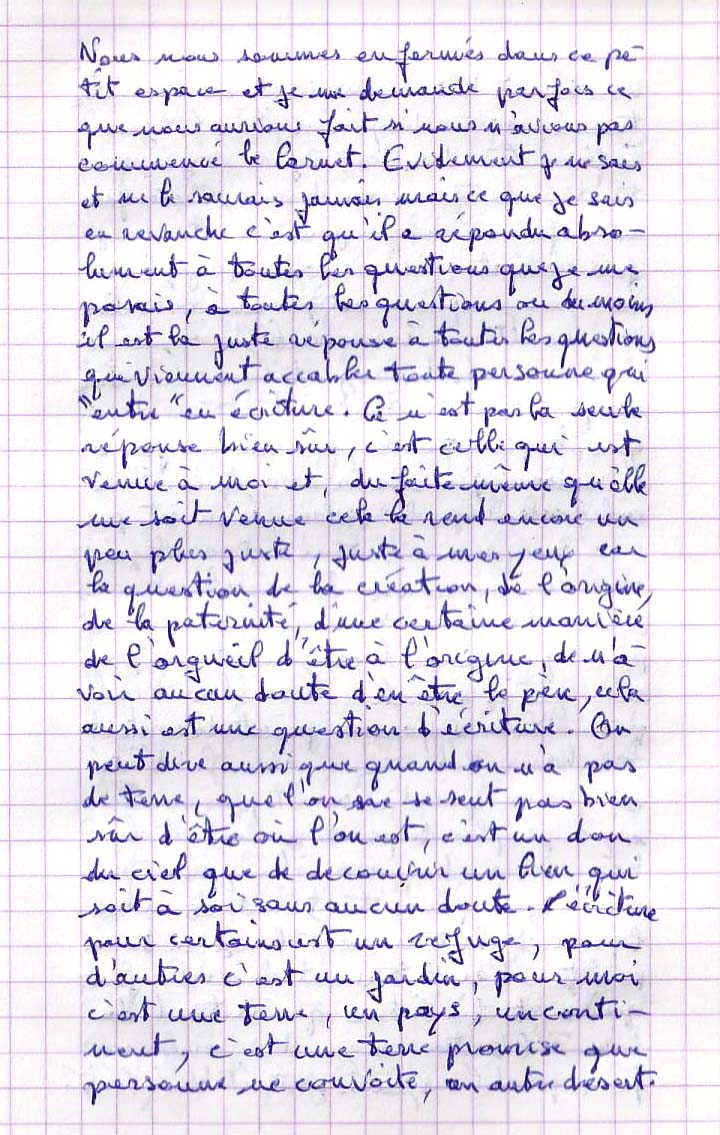 Nous nous sommes enfermés dans ce pe-
tit espace et je me demande parfois ce
que nous aurions fait si nous n'avions pas
commencé le Carnet. Evidement je ne sais
et ne le saurais jamais mais ce que je sais
en revanche c'est qu'il a répondu abso-
lument à toutes les questions que je me
posais, à toutes les questions ou du moins
il est la juste réponse à toutes les questions
qui viennent accabler toute personne qui
"entre" en écriture. Ce n'est pas la seule
réponse bien sûr, c'est celle qui est
venue à moi et, du faite même qu'elle
me soit venue cela la rend encore un
peu plus juste, juste à mes yeux car
la question de la création, de l'origine,
de la paternité, d'une certaine manière
de l'orgueil d'être à l'origine, de n'a-
voir aucun doute d'en être le père, cela
aussi est une question d'écriture. On
peut dire aussi que quand on n'a pas
de terre, que l'on ne se sent pas bien
sûr d'être où l'on est, c'est un don
du ciel que de decouvrir un lieu qui
soit à soi sans aucun doute. L'écriture
pour certains est un refuge, pour
d'autres c'est un jardin, pour moi
c'est une terre, un pays, un conti-
nent, c'est une terre promise que
personne ne convoite, un autre désert.